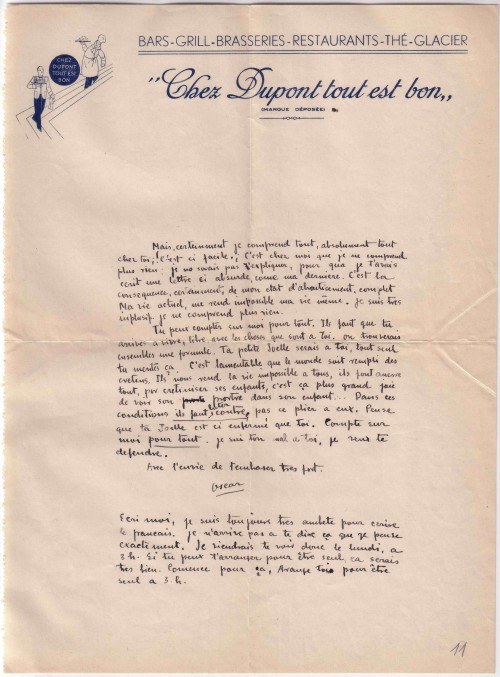 BARS-GRILL-BRASSERIES-RESTAURANTS-THÉ-GLACIER
CHEZ
DUPONT
TOUT EST
BON
"Chez Dupont tout est bon„
(MARQUE DÉPOSÉE)
Mais, certeinment je comprend tout, absolument tout
chez toi; C'est si facile; C'est chez moi que je ne comprend
plus rien: je ne savais pas t'expliquer, pour qua je t'avais
ecrit une lettre si absurde come ma derniere. C'est la
consequence, cer'ainment, de mon etat d'abatiement, complet
Ma vie actuel, me rend imposible ma vie même. Je suis tres
je ne comprend plus rien.
Tu peux compter sur moi pour tout. Ils faut que tu
arives a vivre, libre, avec les choses que sont a toi. on trouverais
ensembles une formule. Ta petite Joelle serais a toi, tout seul
tu merités ça. C'est lamentable que le monde soit rempli des
cretins. Ils nous rend la vie impossible a tous, ils font encore
tout, par cretiniser ses enfants, c'est ça plus grand joie
de voir son dans son enfant... Dans ces
conditions ils faut, contre, pas ce plier a eux. Pense
que ta Joelle est ci enfermé que toi. Compte sur
moi pour tout. je sui ton a toi, je veux te
defendre.
Avec l'envie de t'embraser tres fort.
Oscar
Ecri moi, je suis toujours tres pour ecrire
le francais. Je n'arrive pas a te dire ça que je pense
exactement. Je viendrais te voir donc le lundi, a
3h. Si tu peux t'arranger pour être seul ca serais
tres bien. Comence pour ça, Arange pour être
seul a 3.h.
11